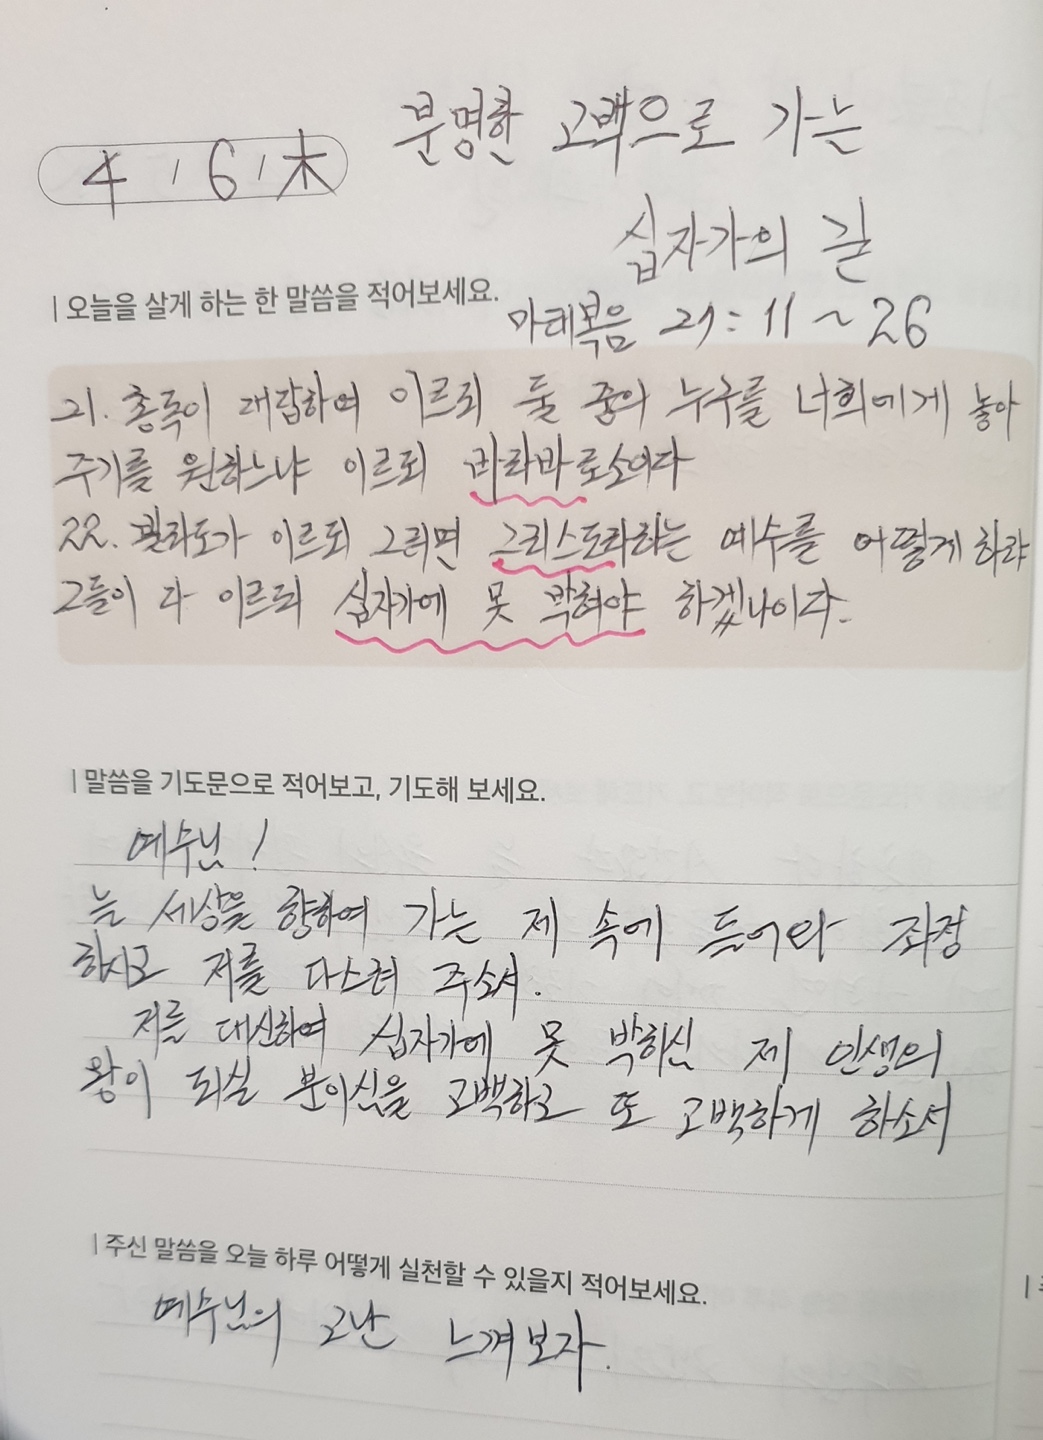 분명한 고백으로 가는
4 / 6 / 木
십자가의 길
| 오늘을 살게 하는 한 말씀을 적어보세요.
마태복음 27 : 11 ~ 26
21. 총독이 대답하여 이르되 둘 중의 누구를 너희에게 놓아
주기를 원하느냐 이르되 바라바로소이다
22. 빌라도가 이르되 그러면 그리스도라하는 예수를 어떻게 하랴
그들이 다 이르되 십자가에 못 박혀야 하겠나이다.
| 말씀을 기도문으로 적어보고, 기도해 보세요.
예수님!
늘 세상을 향하여 가는 제 속에 들어와 좌정
하시고 저를 다스려 주소서.
저를 대신하여 십자가에 못 박히신 제 인생의
왕이 되실 분이심을 고백하고 또 고백하게 하소서
| 주신 말씀을 오늘 하루 어떻게 실천할 수 있을지 적어보세요.
예수님의 고난 느껴보자.